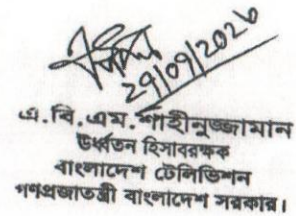 29/09/2020
এ.বি.এম.শাহীনুজ্জামান
উর্ধ্বতন হিসাবরক্ষক
বাংলাদেশ টেলিভিশন
গণপ্রজাতন্ত্রী বাংলাদেশ সরকার।